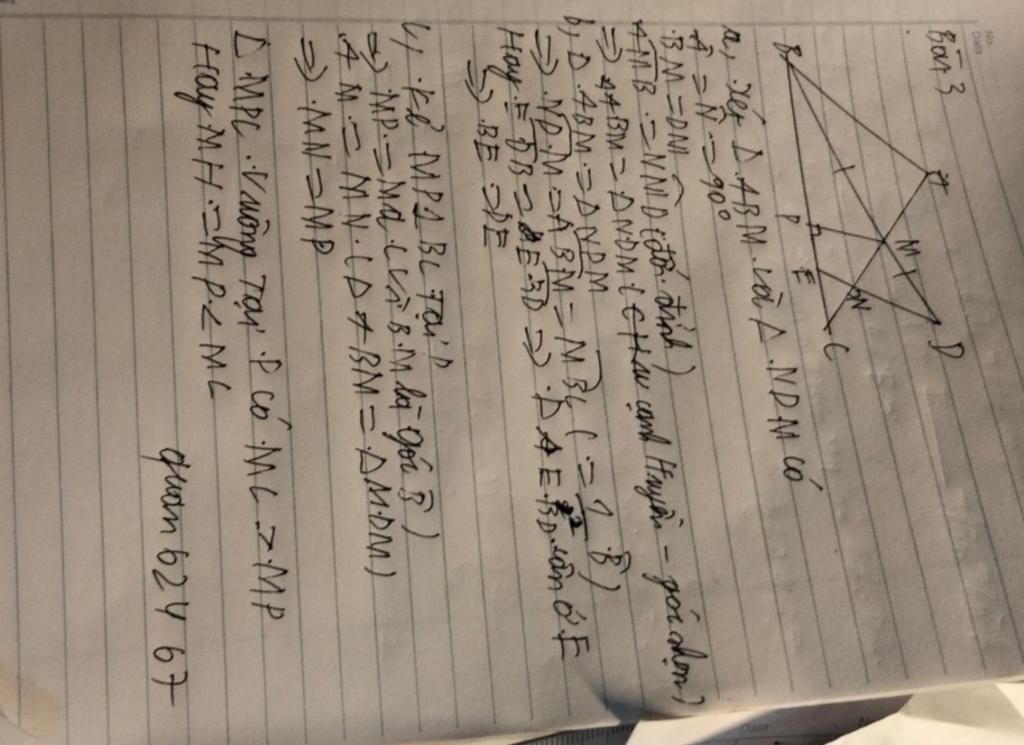 Bài 3
A
B
C
D
M
N
P
E
a, Xét Δ.ABM.và Δ.NDM có
.BM=DN
Â=N̂.=90°
AMB.=NMD(đối.đỉnh)
=) ΔABM=ΔNDM( Huyền - góc nhọn)
b, D.ABM.=ΔNDM
=) .NDM=ABM=MBC(=1/2 B̂)
Hay.EDB=EBD=) .D EBD.cân ở.E
=) .BE=DE
c, .Kẻ MP⊥BC.Tại P
=) MP.=Ma(Vì B.M là góc B̂)
AM.=MN.(Δ ABM=ΔM.DM)
=) .MN=MP
Δ.MPC.Vuông Tại.P có.MC>.MP
Hay MH.=MP<MC
quan62467